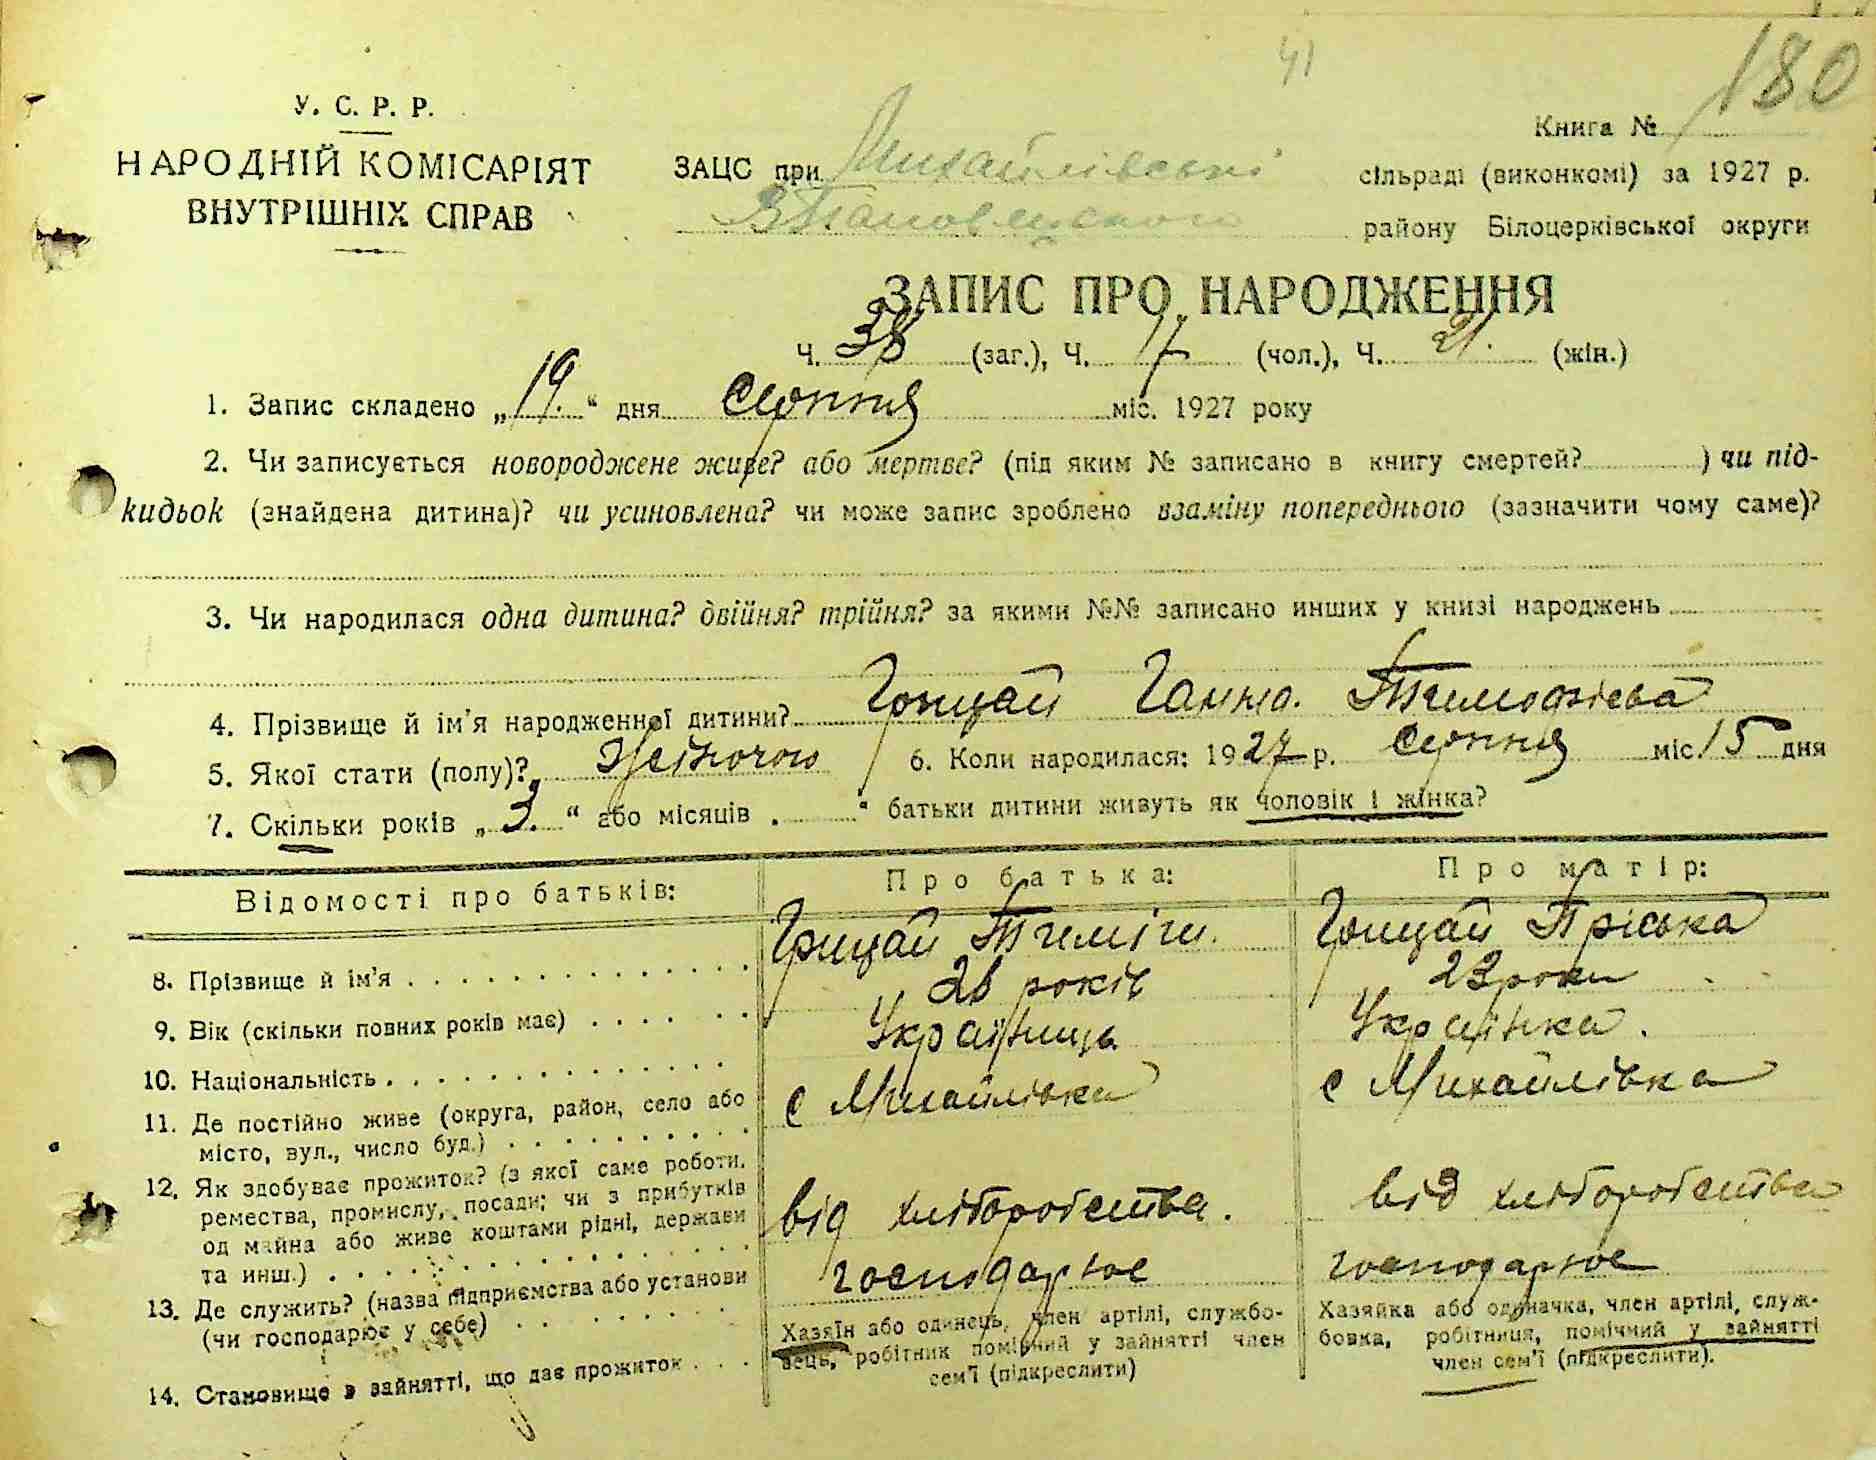 41
180
У. С. Р. Р.
НАРОДНІЙ КОМІСАРІЯТ
ВНУТРІШНІХ СПРАВ
Книга №
ЗАЦС при Михайлівські сільраді (виконкомі) за 1927 р.
району Білоцерківської округи
ЗАПИС ПРО НАРОДЖЕННЯ
Ч. 38 (заг.), Ч. 17 (чол.), Ч. 21. (жін.)
1. Запис складено „19.“ дня серпня міс. 1927 року
2. Чи записується новороджене живе? або мертве? (під яким № записано в книгу смертей? ) чи під-
кидьок (знайдена дитина)? чи усиновлена? чи може запис зроблено взаміну попереднього (зазначити чому саме)?
3. Чи народилася одна дитина? двійня? трійня? за якими №№ записано инших у книзі народжень
4. Прізвище й ім'я народженної дитини? Грицай Ганна. Тимофієва
5. Якої стати (полу)? Жіночою 6. Коли народилася: 1927 р. серпня міс. 15 дня
7. Скільки років „3.“ або місяців „ “ батьки дитини живуть як чоловік і жінка?
Відомості про батьків: Про батька: Про матір:
8. Прізвище й ім'я . . . . . . . . . . . . . Грицай Тиміш. Грицай Пріська
9. Вік (скільки повних років має) . . . . . . 28 років 23 роки
10. Національність . . . . . . . . . . . . . . Українець Українка.
11. Де постійно живе (округа, район, село або с Михайлівка с Михайлівка
місто, вул., число буд.) . . . . . . . . . .
12. Як здобуває прожиток? (з якої саме роботи,
ремества, промислу, посади; чи з прибутків від хліборобства. від хліборобства
од майна або живе коштами рідні, держави
та инш.) . . . . . . . . . . . . . . . . .
13. Де служить? (назва підприємства або установи господарює господарює
(чи господарює у себе) . . . . . . . . .
14. Становище в зайнятті, що дає прожиток . . .
Хазяїн або одинець, член артілі, службо-
вець, робітник помічний у зайнятті член
сем'ї (підкреслити)
Хазяйка або одиначка, член артілі, служ-
бовка, робітниця, помічний у зайнятті
член сем'ї (підкреслити).